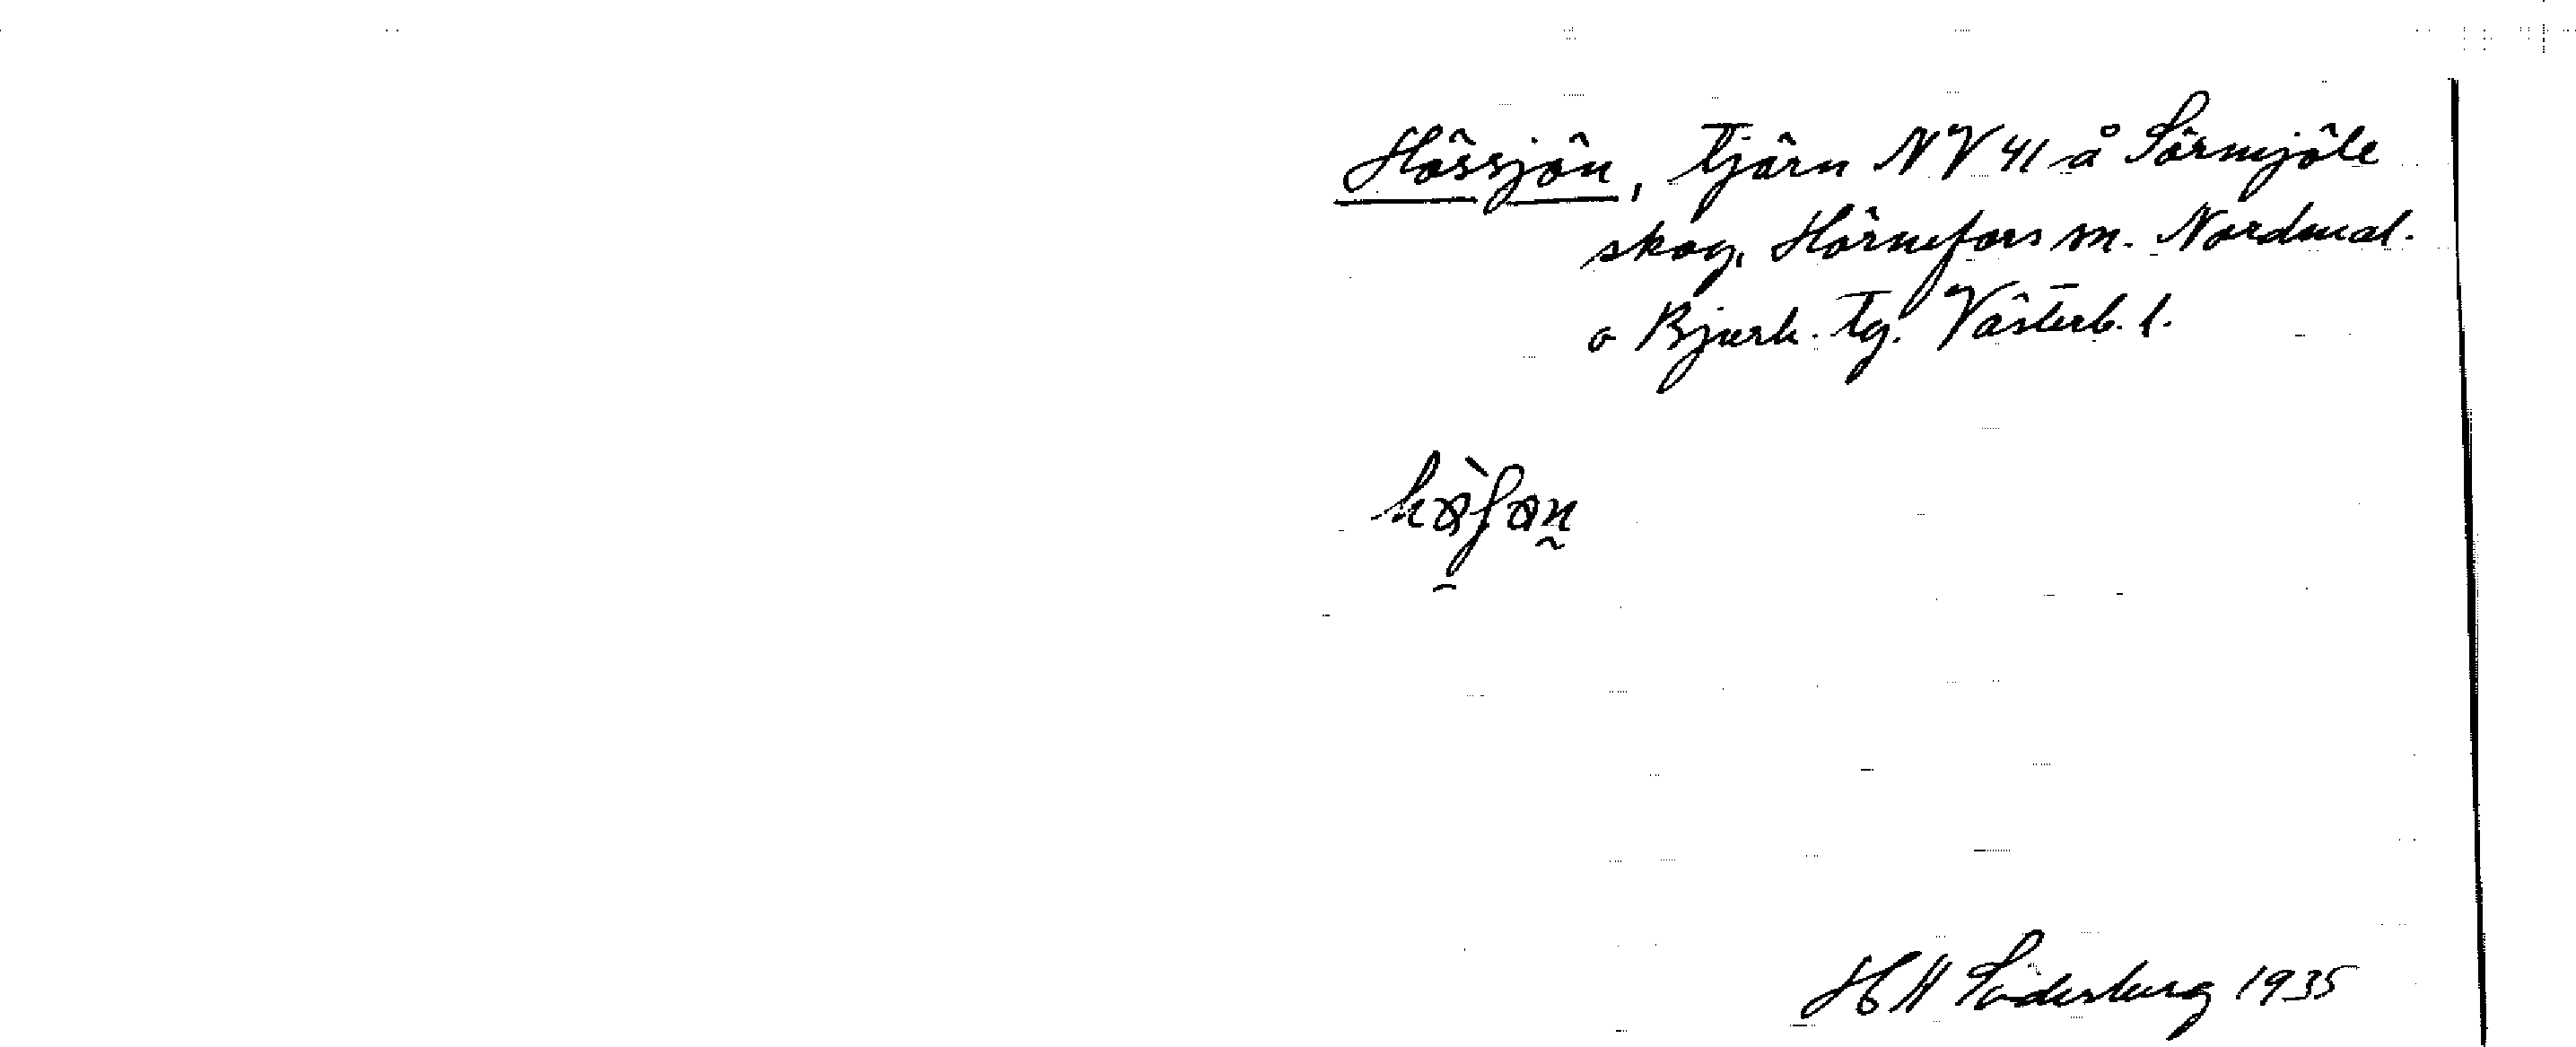 Hössjön, Tjärn NV 41 å Sörmjöle
skog, Hörnefors sn. Nordmal.
o Bjurh. tg. Västerb. l.
1935